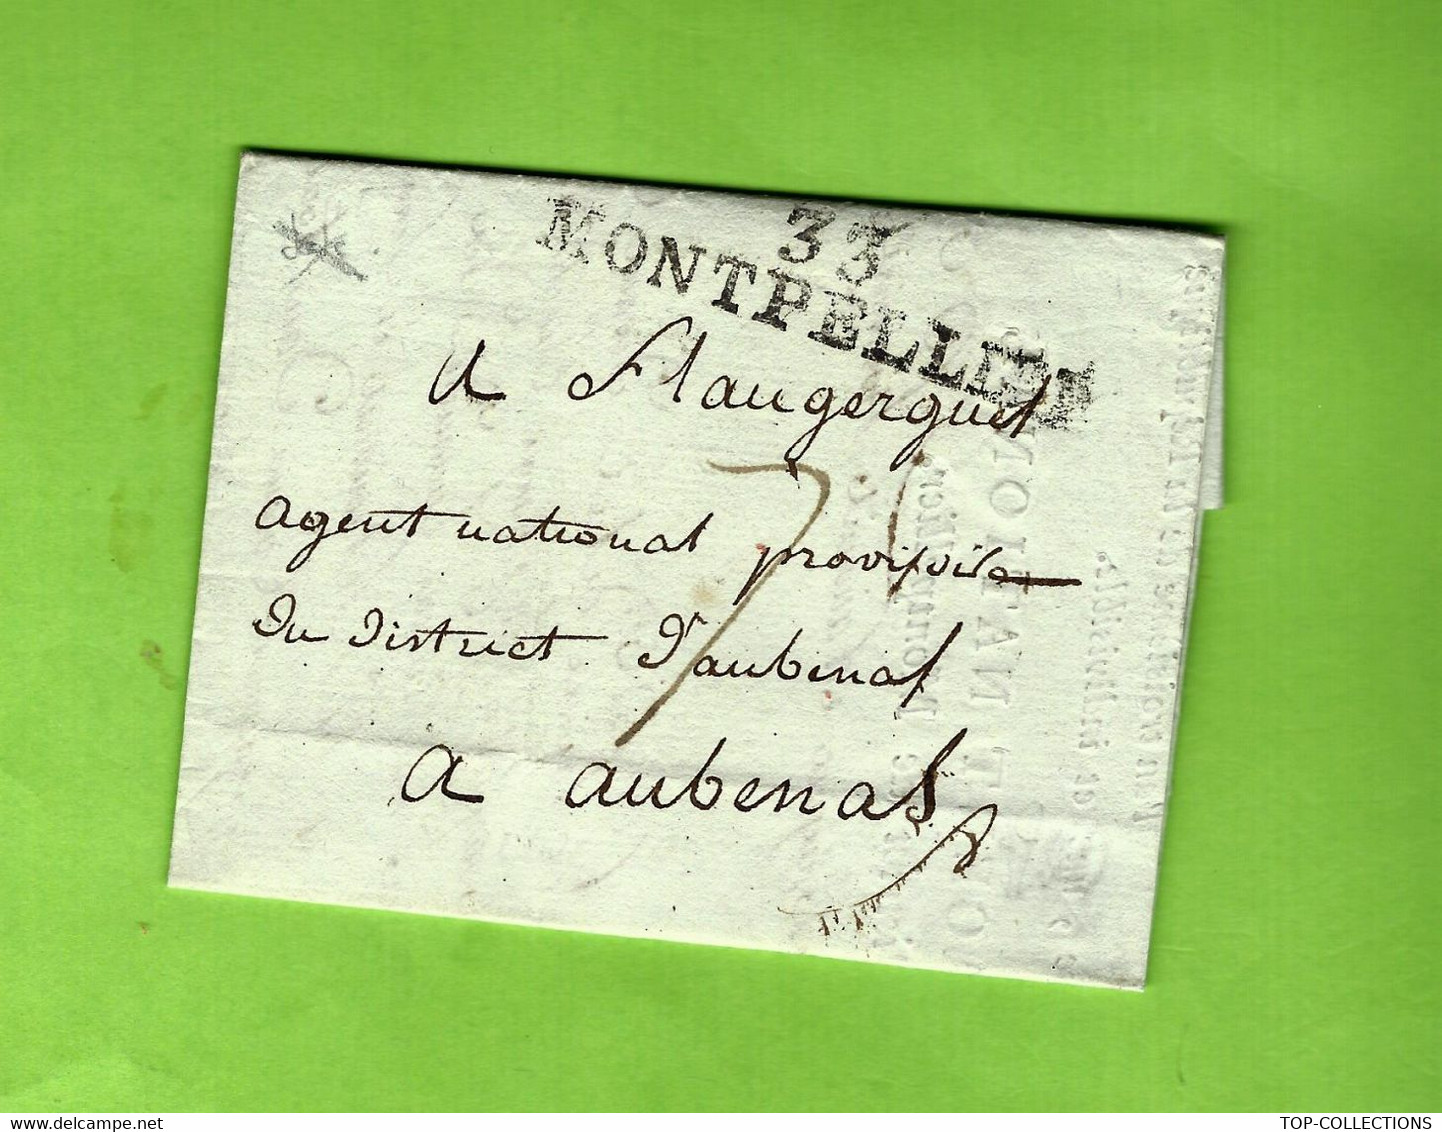 33
MONTPELLIER
A Flaugerguet
agent national provisoire
Du District D'aubenas
a aubenas
www.delcampe.net
TOP-COLLECTIONS